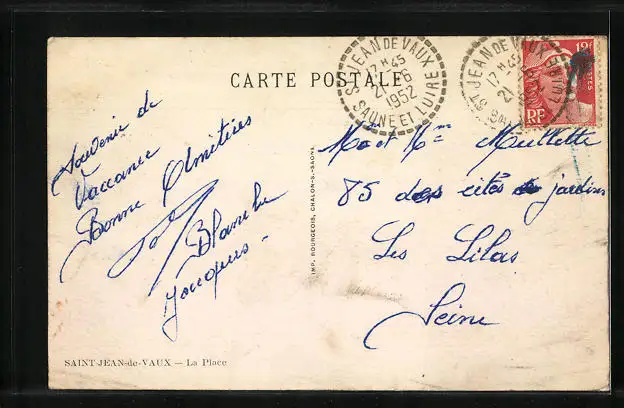 CARTE POSTALE
Souvenir de
Vaccance
Bonne Amitiées
Blanche
Jacques
SAINT-JEAN-de-VAUX — La Place
IMP. BOURGEOIS, CHALON-S.-SAONE
ST JEAN DE VAUX
17 H 45
21 -6
1952
SAONE ET LOIRE
ST JEAN DE VAUX
17 H 45
21
12F
POSTES
RF
Mr et Mme Mullette
85 des cités jardins
Les Lilas
Seine